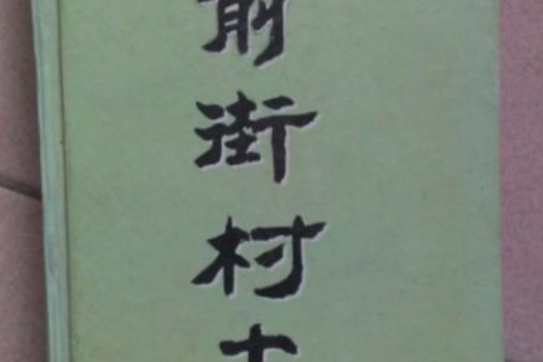 前街村